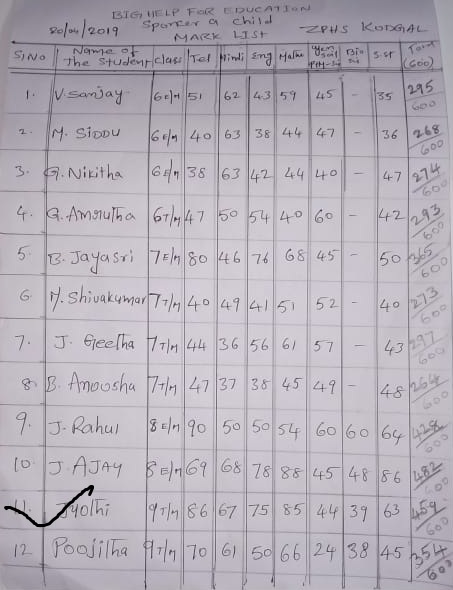 BIG HELP FOR EDUCATION
20/04/2019 Sponcer a child ZPHS KODGAL
MARK LIST
S.No Name of The Student Class Tel Hindi Eng Maths Gen Sci/PH-Sc Bio Sci S.St Total (600)
1. V. Sanjay 6E/M 51 62 43 59 45 - 35 295/600
2. M. SIDDU 6E/M 40 63 38 44 47 - 36 268/600
3. G. Nikitha 6E/M 38 63 42 44 40 - 47 274/600
4. G. Amrutha 6T/M 47 50 54 40 60 - 42 293/600
5. B. Jayasri 7E/M 80 46 76 68 45 - 50 365/600
6 M. Shivakumar 7T/M 40 49 41 51 52 - 40 273/600
7. J. Geetha 7T/M 44 36 56 61 57 - 43 297/600
8. B. Anoosha 7T/M 47 37 38 45 49 - 48 264/600
9. J. Rahul 8E/M 90 50 50 54 60 60 64 428/600
10. J. AJAY 8E/M 69 68 78 88 45 48 86 482/600
11. Jyothi 9T/M 86 67 75 85 44 39 63 459/600
12 Poojitha 9T/M 70 61 50 66 24 38 45 354/600